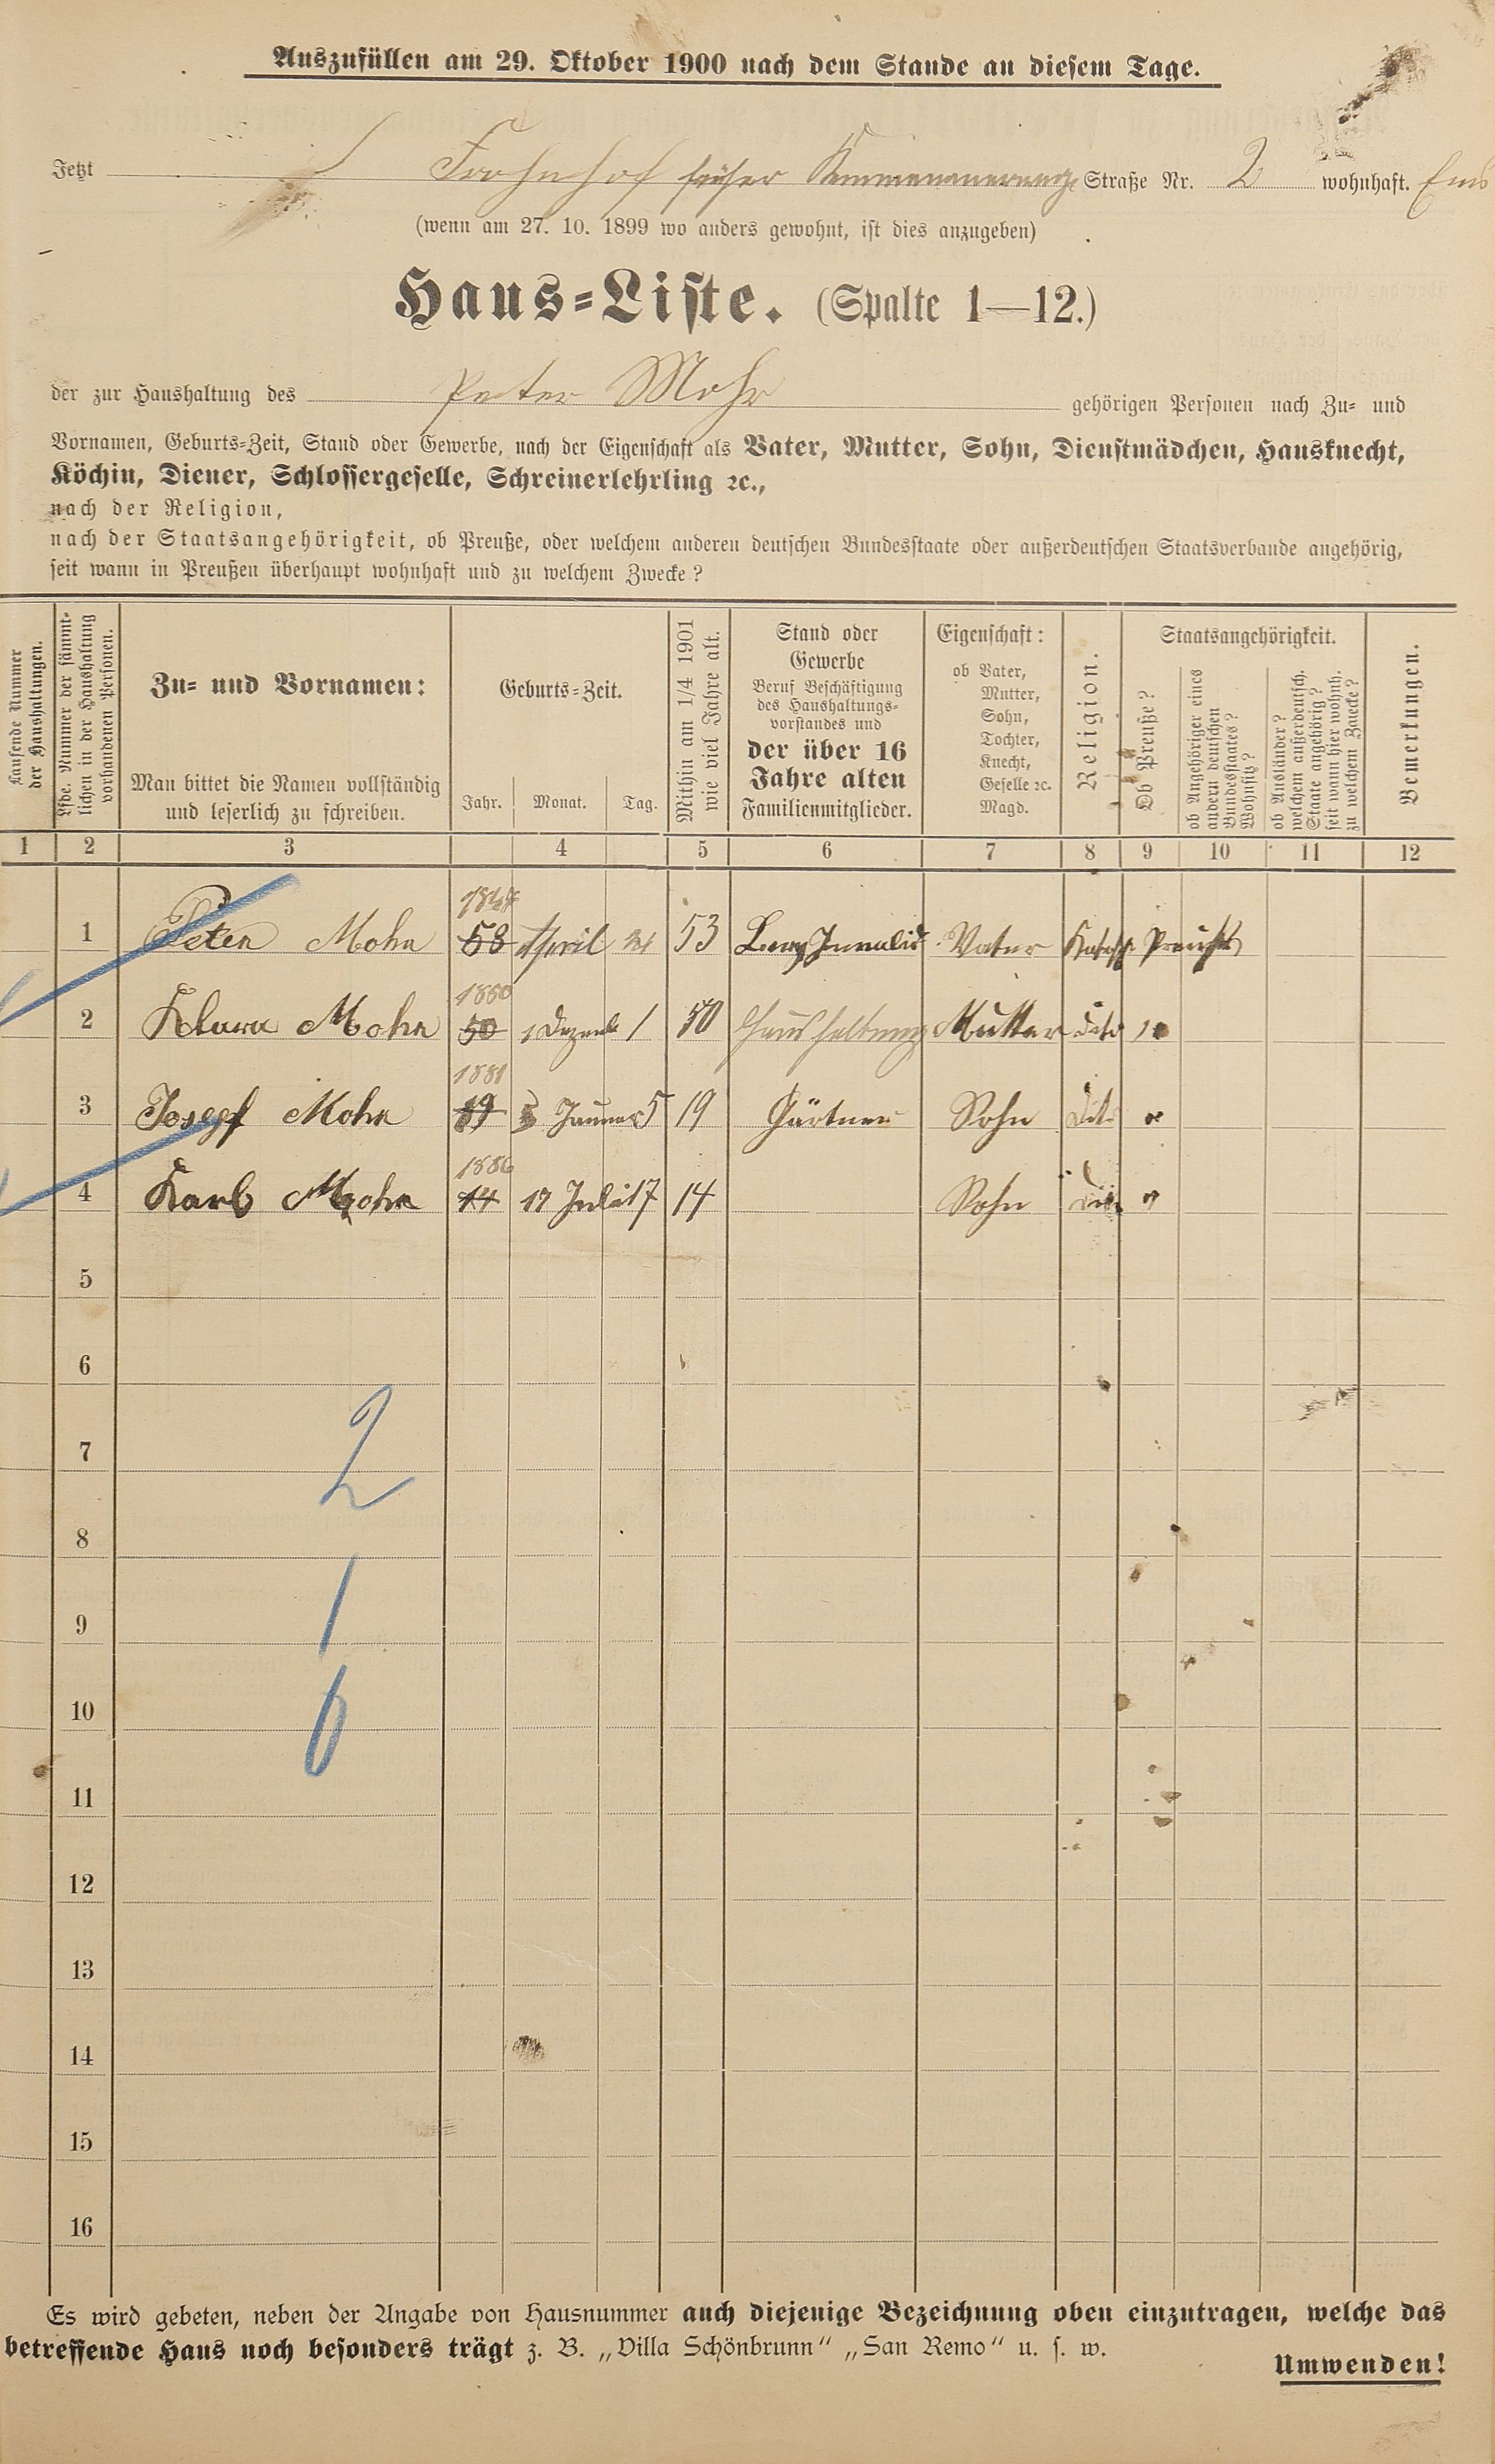 Auszufüllen am 29. Oktober 1900 nach dem Stande an diesem Tage.
Jetzt Frohnhof früher Straße Nr. 2 wohnhaft. Ems
(wenn am 27. 10. 1899 wo anders gewohnt, ist dies anzugeben)
Haus-Liste. (Spalte 1—12.)
der zur Haushaltung des Peter Mohr gehörigen Personen nach Zu- und
Vornamen, Geburts-Zeit, Stand oder Gewerbe, nach der Eigenschaft als Vater, Mutter, Sohn, Dienstmädchen, Hausknecht,
Köchin, Diener, Schlossergeselle, Schreinerlehrling ꝛc.,
nach der Religion,
nach der Staatsangehörigkeit, ob Preuße, oder welchem anderen deutschen Bundesstaate oder außerdeutschen Staatsverbande angehörig,
seit wann in Preußen überhaupt wohnhaft und zu welchem Zwecke?
Laufende Nummer
der Haushaltungen.
Lfde. Nummer der sämmt-
lichen in der Haushaltung
vorhandenen Personen.
Zu- und Vornamen:
Man bittet die Namen vollständig
und leserlich zu schreiben.
Geburts-Zeit.
Jahr. Monat. Tag.
Mithin am 1/4 1901
wie viel Jahre alt.
Stand oder
Gewerbe
Beruf Beschäftigung
des Haushaltungs-
vorstandes und
der über 16
Jahre alten
Familienmitglieder.
Eigenschaft:
ob Vater,
Mutter,
Sohn,
Tochter,
Knecht,
Geselle ꝛc.
Magd.
Religion.
Staatsangehörigkeit.
Ob Preuße?
ob Angehöriger eines
andern deutschen
Bundesstaates?
Wohnsitz?
ob Ausländer?
welchem außerdeutsch.
Staate angehörig?
seit wann hier wohnh.
zu welchem Zwecke?
Bemerkungen.
1 2 3 4 5 6 7 8 9 10 11 12
1847
1 Peter Mohr 58 April 53 Berg Invalid Vater Kathol. Preuße
1850
2 Klara Mohr 50 1 Dezemb 1 50 Haushaltung Mutter dito
1881
3 Josepf Mohr 19 Januar 5 19 Gärtner Sohn dito
1886
4 Karl Mohr 14 17 Juli 17 14 Sohn dito
5
6
7
2
8
9
1
10
0
11
12
13
14
15
16
Es wird gebeten, neben der Angabe von Hausnummer auch diejenige Bezeichnung oben einzutragen, welche das
betreffende Haus noch besonders trägt z. B. „Villa Schönbrunn“ „San Remo“ u. s. w.
Umwenden!